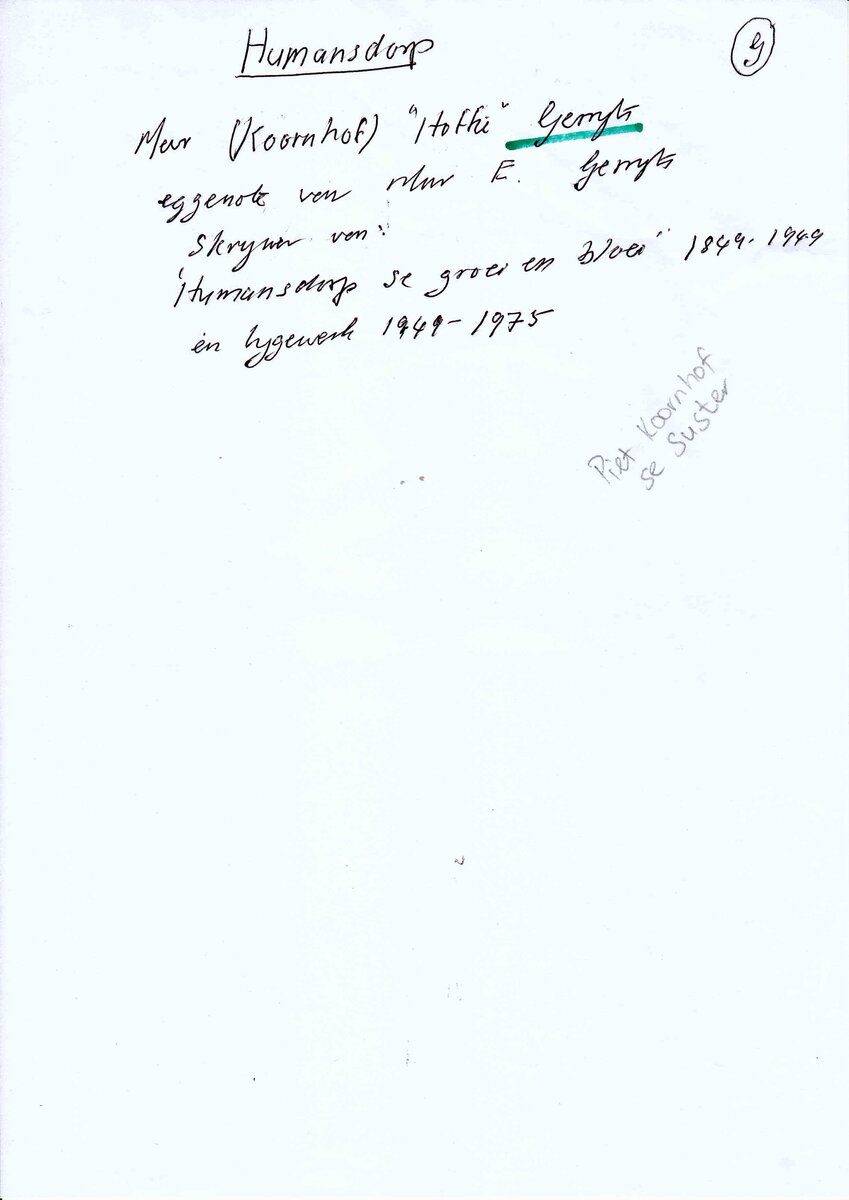 Humansdorp
G
Mev (Koornhof) "Hoffie" Gerryts
eggenote van Mnr E. Gerryts
Skrywer van:
"Humansdorp se groei en bloei" 1849-1949
en bygewerk 1949-1975
Piet Koornhof
se Suster